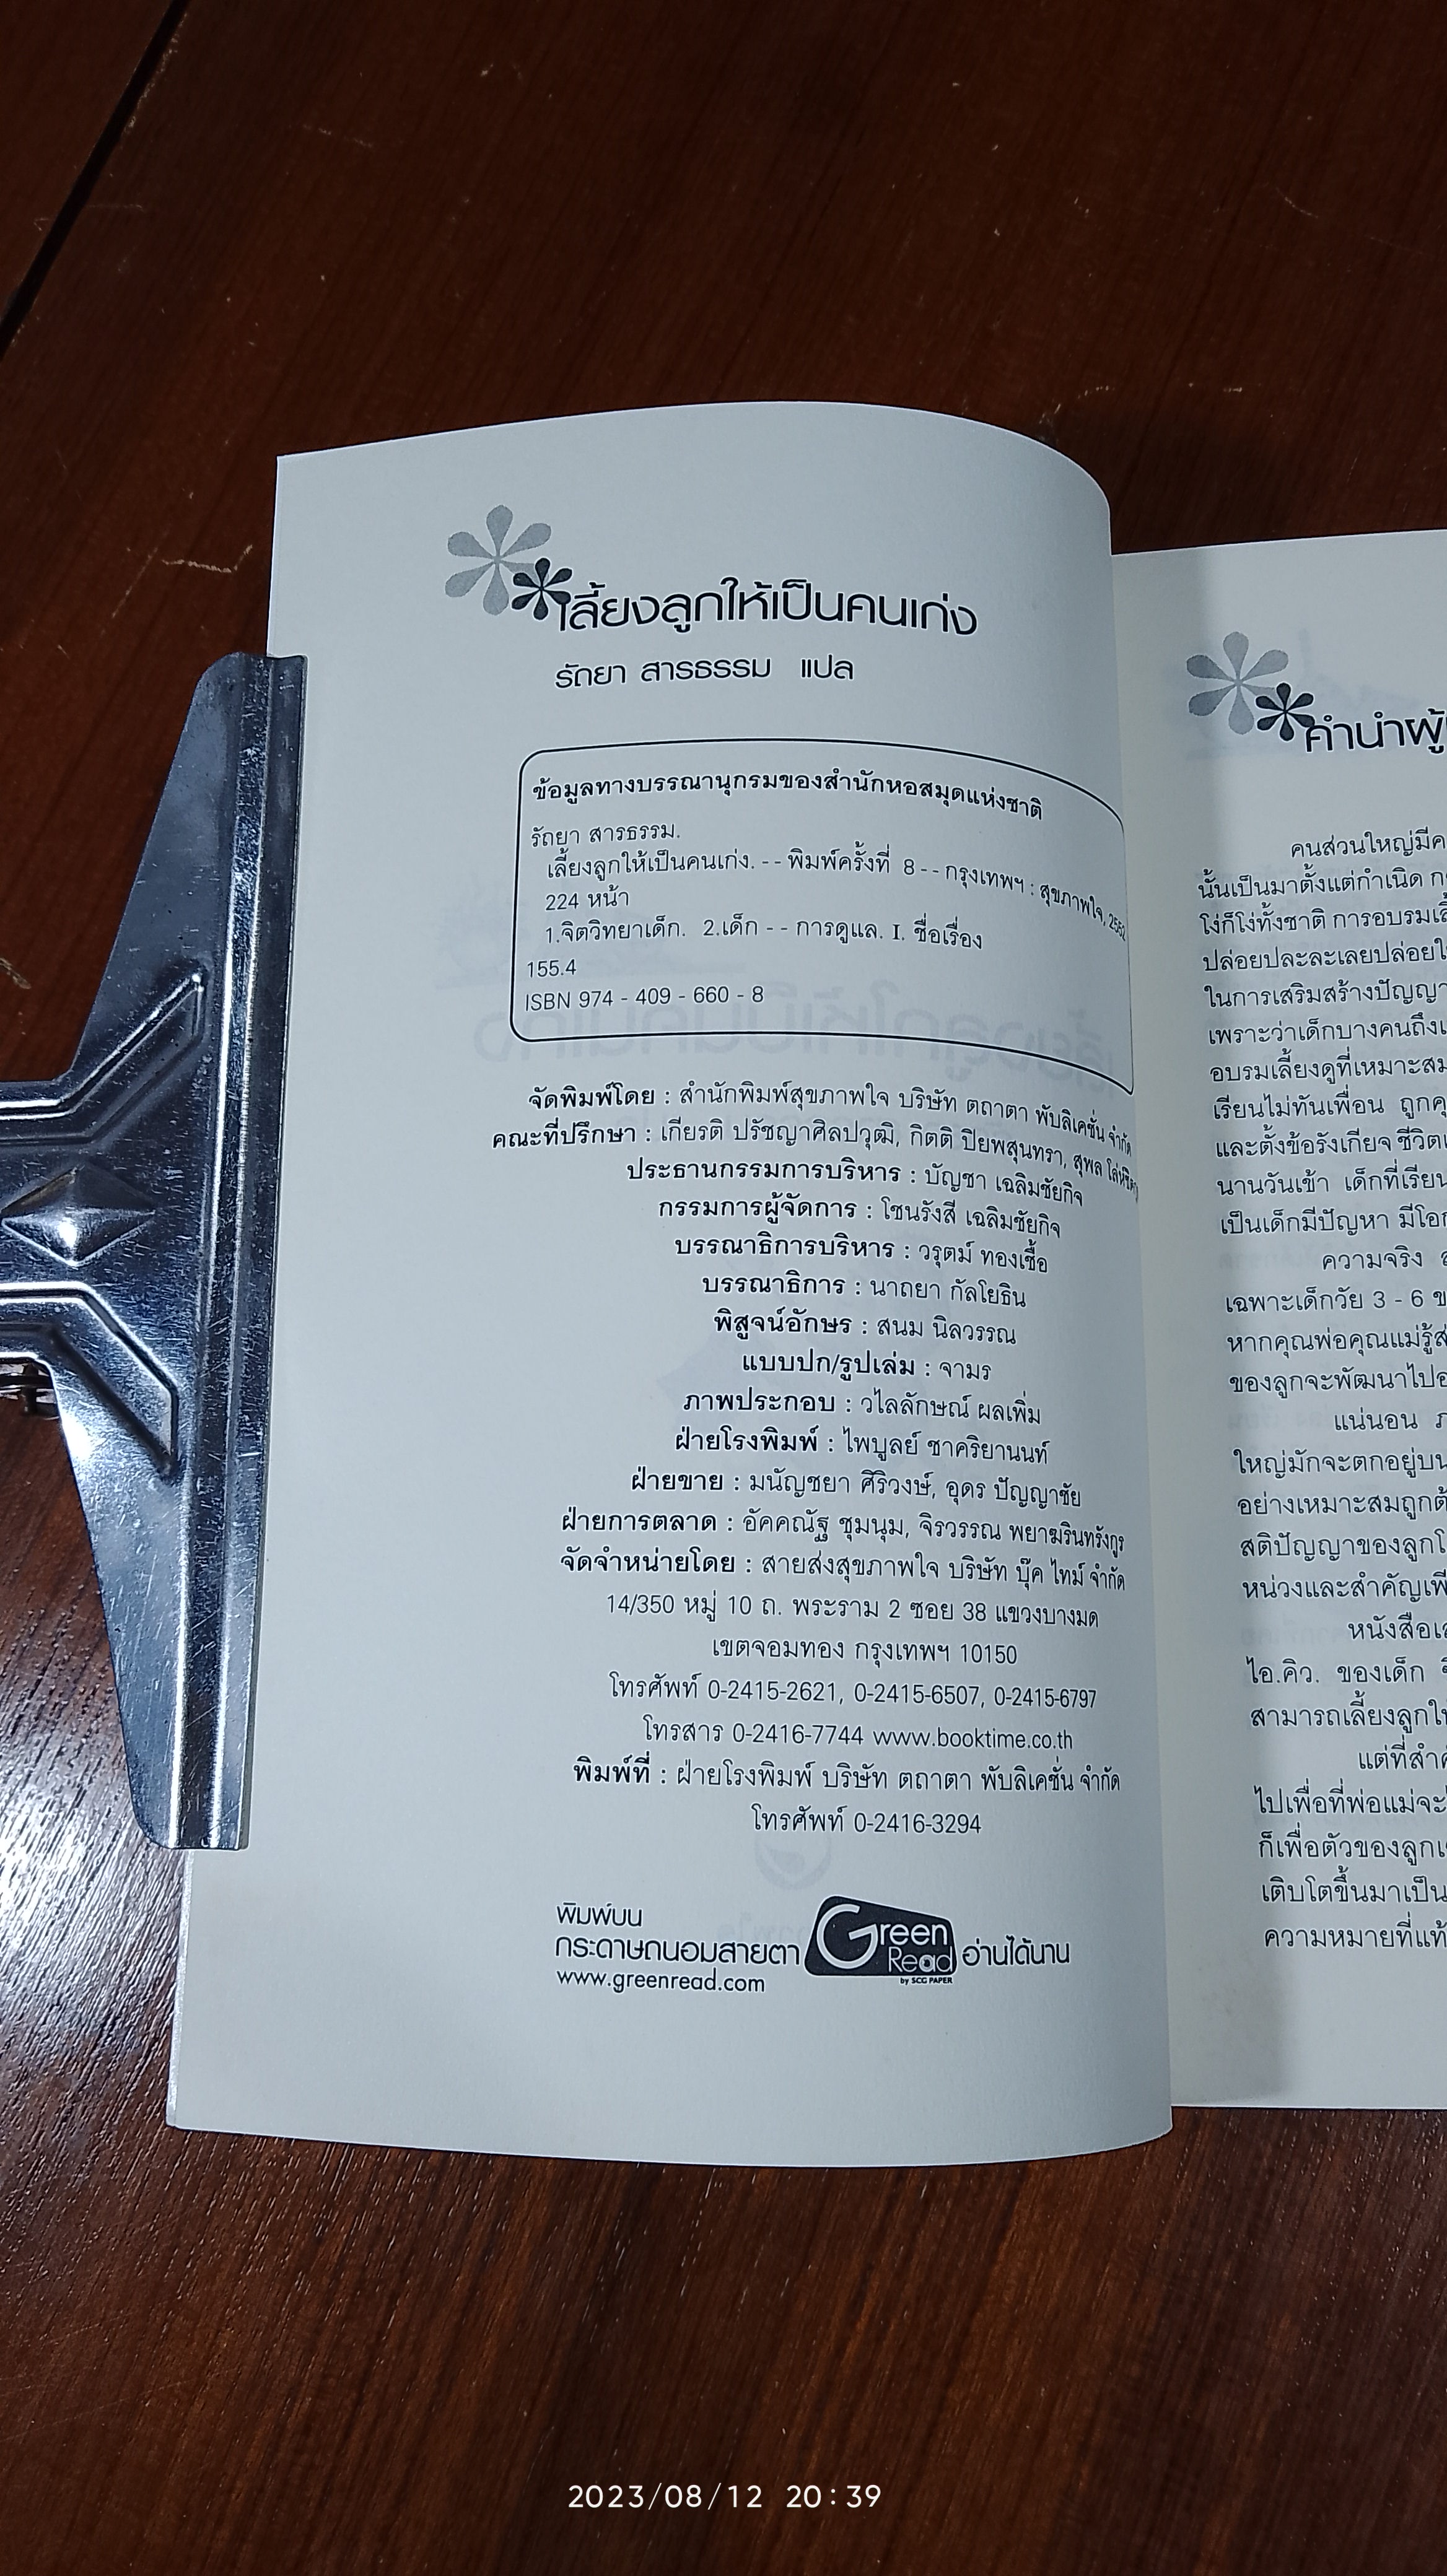 เลี้ยงลูกให้เป็นคนเก่ง
รัถยา สารธรรม แปล
ข้อมูลทางบรรณานุกรมของสำนักหอสมุดแห่งชาติ
รัถยา สารธรรม.
เลี้ยงลูกให้เป็นคนเก่ง. - - พิมพ์ครั้งที่ 8 - - กรุงเทพฯ : สุขภาพใจ, 2552
224 หน้า
1.จิตวิทยาเด็ก. 2.เด็ก - - การดูแล. I. ชื่อเรื่อง
155.4
ISBN 974 - 409 - 660 - 8
จัดพิมพ์โดย : สำนักพิมพ์สุขภาพใจ บริษัท ตถาตา พับลิเคชั่น จำกัด
คณะที่ปรึกษา : เกียรติ ปรัชญาศิลปวุฒิ, กิตติ ปิยพสุนทรา, สุพล
ประธานกรรมการบริหาร : บัญชา เฉลิมชัยกิจ
กรรมการผู้จัดการ : โชนรังสี เฉลิมชัยกิจ
บรรณาธิการบริหาร : วรุตม์ ทองเชื้อ
บรรณาธิการ : นาถยา กัลโยธิน
พิสูจน์อักษร : สนม นิลวรรณ
แบบปก/รูปเล่ม : จามร
ภาพประกอบ : วไลลักษณ์ ผลเพิ่ม
ฝ่ายโรงพิมพ์ : ไพบูลย์ ชาคริยานนท์
ฝ่ายขาย : มนัญชยา ศิริวงษ์, อุดร ปัญญาชัย
ฝ่ายการตลาด : อัคคณัฐ ชุมนุม, จิรวรรณ พยาฆรินทรังกูร
จัดจำหน่ายโดย : สายส่งสุขภาพใจ บริษัท บุ๊ค ไทม์ จำกัด
14/350 หมู่ 10 ถ. พระราม 2 ซอย 38 แขวงบางมด
เขตจอมทอง กรุงเทพฯ 10150
โทรศัพท์ 0-2415-2621, 0-2415-6507, 0-2415-6797
โทรสาร 0-2416-7744 www.booktime.co.th
พิมพ์ที่ : ฝ่ายโรงพิมพ์ บริษัท ตถาตา พับลิเคชั่น จำกัด
โทรศัพท์ 0-2416-3294
พิมพ์บน
กระดาษถนอมสายตา Green Read อ่านได้นาน
by SCG PAPER
www.greenread.com
คำนำผู้
คนส่วนใหญ่มีค
นั้นเป็นมาตั้งแต่กำเนิด
โง่ก็โง่ทั้งชาติ การอบรม
ปล่อยปละละเลยปล่อย
ในการเสริมสร้างปัญญา
เพราะว่าเด็กบางคนถึง
อบรมเลี้ยงดูที่เหมาะสม
เรียนไม่ทันเพื่อน ถูก
และตั้งข้อรังเกียจ ชีวิต
นานวันเข้า เด็กที่เรียน
เป็นเด็กมีปัญหา มีโอก
ความจริง
เฉพาะเด็กวัย 3 - 6 ข
หากคุณพ่อคุณแม่รู้
ของลูกจะพัฒนาไป
แน่นอน
ใหญ่มักจะตกอยู่บน
อย่างเหมาะสมถูกต้
สติปัญญาของลูก
หน่วงและสำคัญ
หนังสือเ
ไอ.คิว. ของเด็ก
สามารถเลี้ยงลูก
แต่ที่สำค
ไปเพื่อที่พ่อแม่จะ
ก็เพื่อตัวของลูก
เติบโตขึ้นมาเป็น
ความหมายที่แท้
2023/08/12 20:39